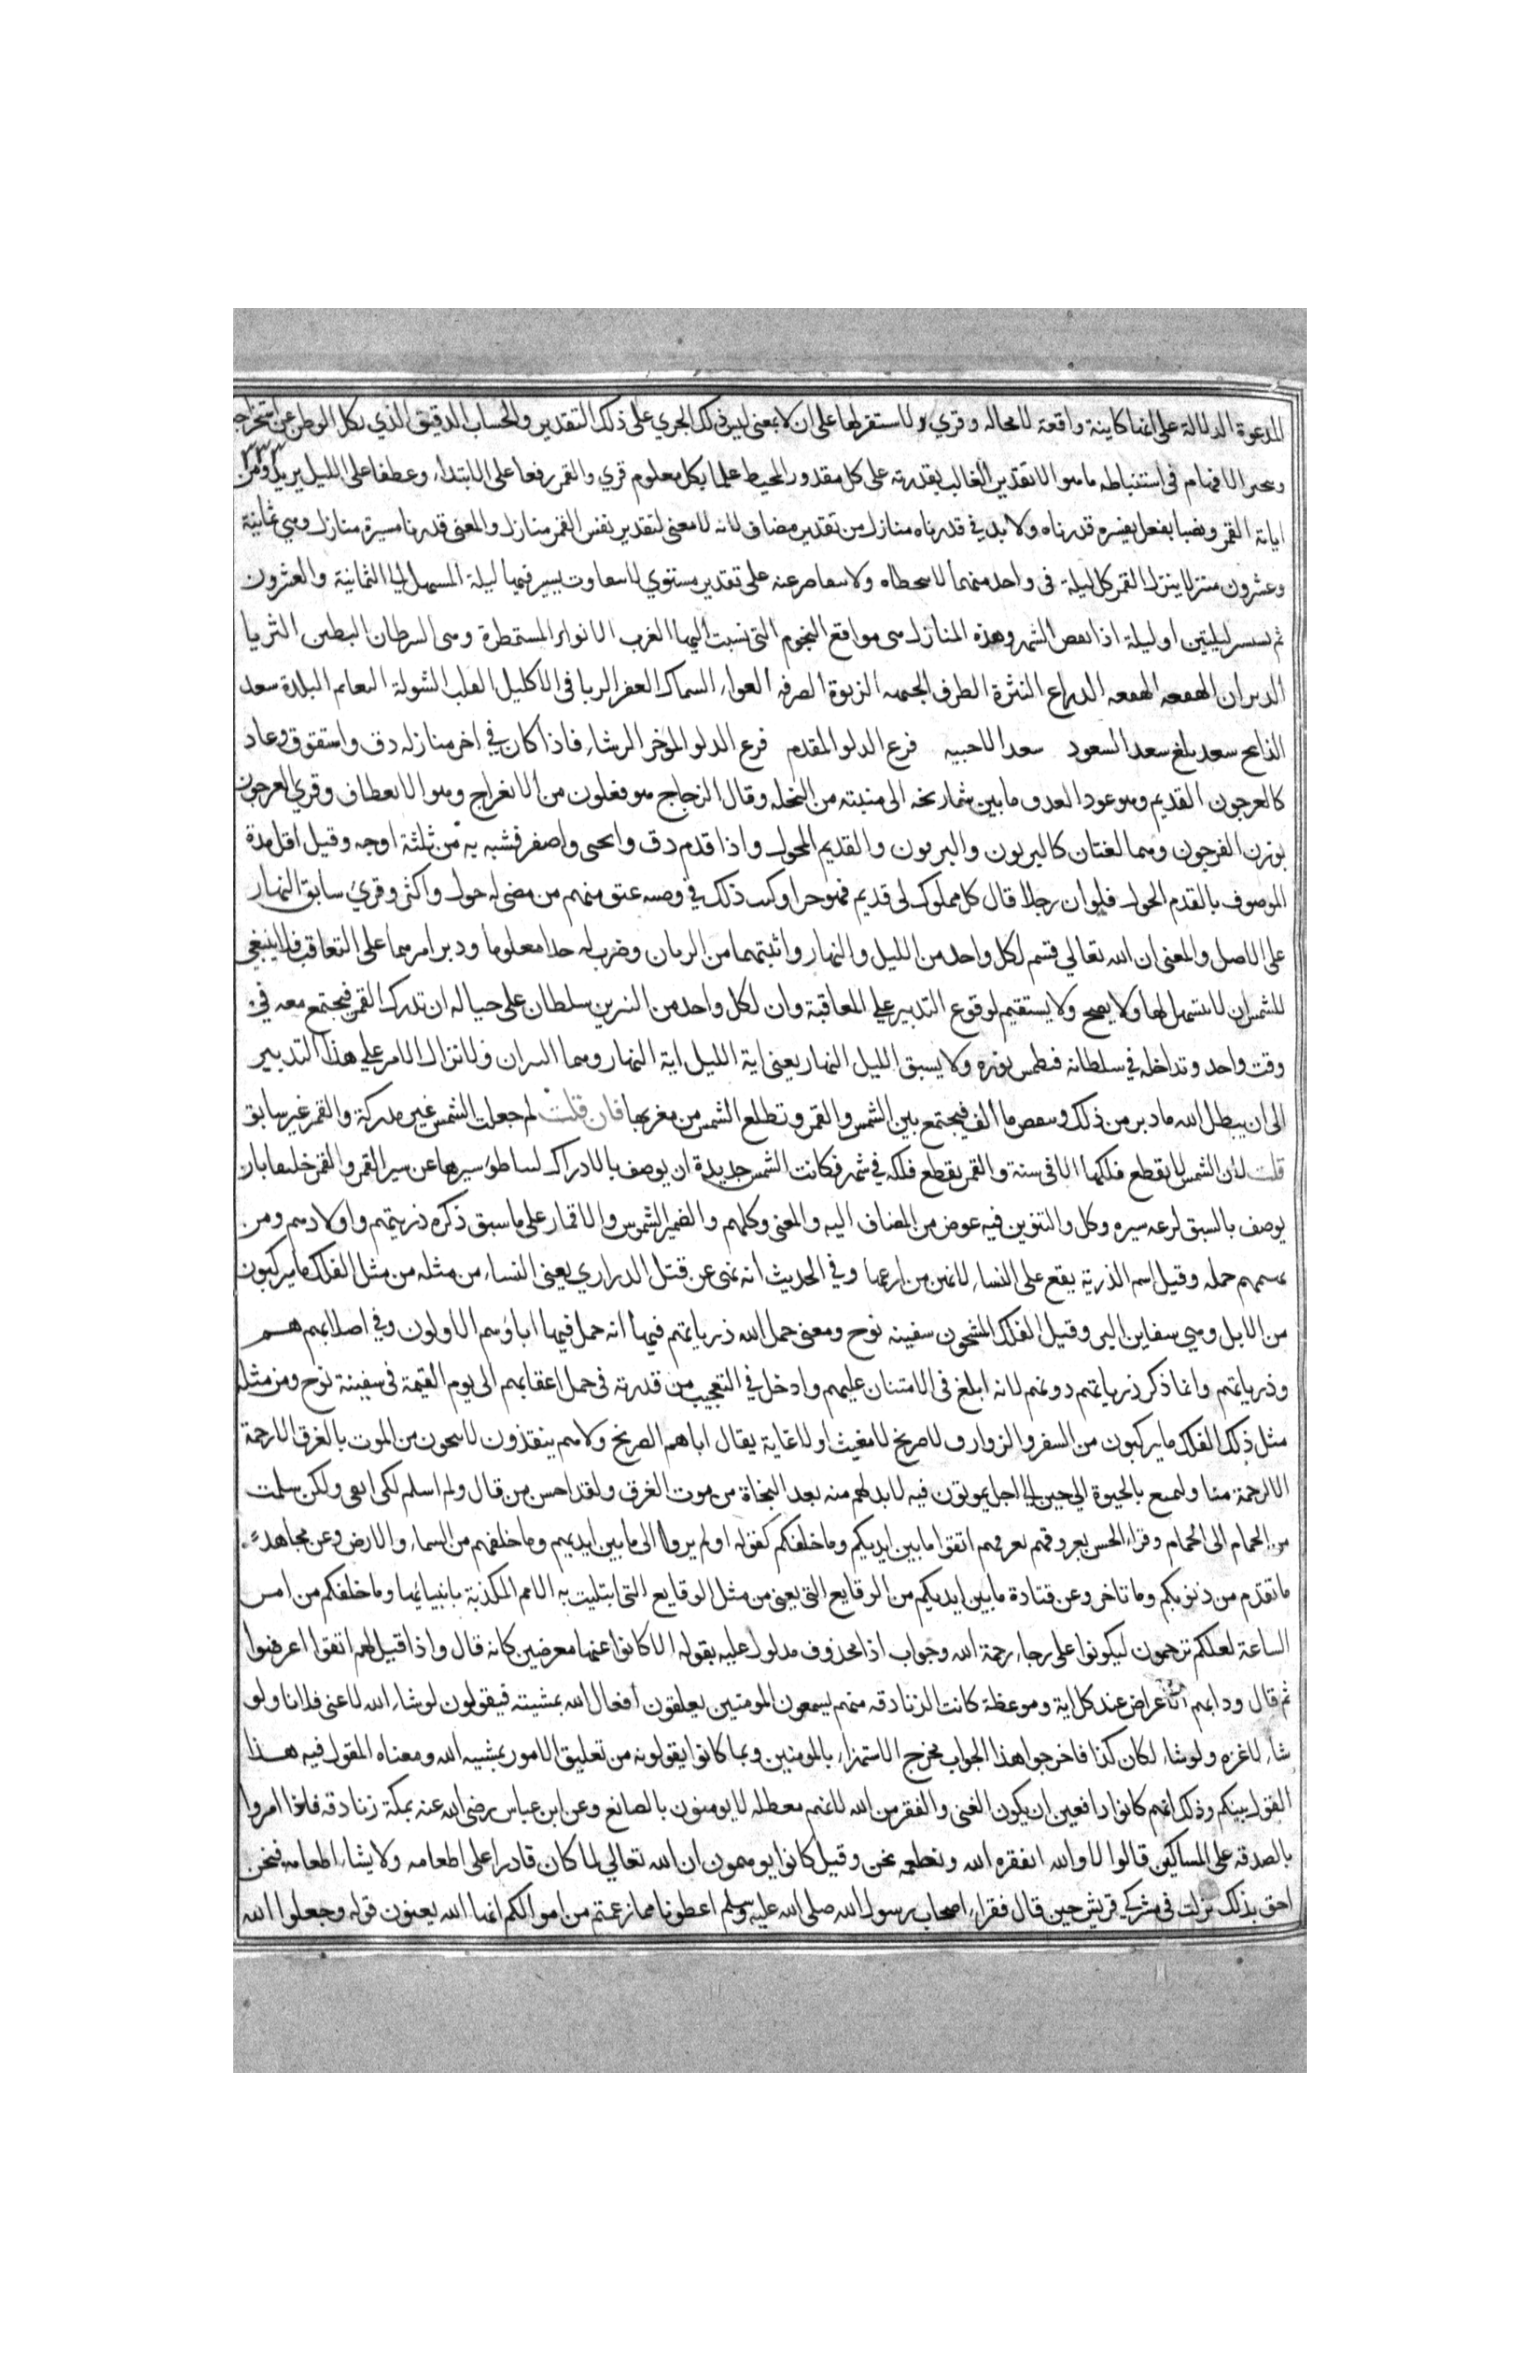 المدعوة الدلالة على انها كاينة واقعة لا محاله وقري ولا مستقر لها على ان لا بمعنى ليس ذلك الجري على ذلك التقدير والحساب الدقيق الذي يكل الفطن عن استخراجه
٣٣٣
وتتحير الافهام في استنباطه ما هو الا تقدير الغالب بقدرته على كل مقدور المحيط علما بكل معلوم قري والقمر رفعا على الابتداء وعطفا على الليل يريد ومن
اياته القمر ونصبا بفعل يفسره قدرناه ولا بد في قدرناه منازل من تقدير مضاف لانه لا معنى لتقدير نفس القمر منازل والمعنى قدرنا مسيرة منازل وهي ثمانية
وعشرون منزلا ينزل القمر كل ليلة في واحد منها لا يتخطاه ولا يتقاصر عنه على تقدير مستوي لا يتفاوت يسير فيها ليلة المستهل الى الثمانية والعشرون
ثم يستسر ليلتين او ليلة اذا نقص الشهر وهذه المنازل هي مواقع النجوم التي نسبت اليها العرب الانواء المستمطرة وهي السرطان البطين الثريا
الدبران الهقعه الهنعه الدراع النثرة الطرف الجبهه الزبرة الصرفه العواء السماك الغفر الزبانى الاكليل القلب الشولة النعايم البلدة سعد
الذابح سعد بلع سعد السعود سعد الاخبيه فرع الدلو المقدم فرع الدلو الموخر الرشاء فاذا كان في اخر منازله دق واستقوق وعاد
كالعرجون القديم وهو عود العدق ما بين شماريخه الى منبته من النخله وقال الزجاج هو فعلون من الانعراج وهو الانعطاف وقري العرجون
بوزن الفرجون وهما لغتان كالبزيون والبزيون والقديم المحول واذا قدم دق وانحنى واصفر فشبه به من ثلثة اوجه وقيل اقل مدة
الموصوف بالقدم الحول فلو ان رجلا قال كل مملوك لى قديم فهو حر او كتب ذلك في وصيه عتق منهم من مضى له حول واكثر وقري سابق النهار
على الاصل والمعنى ان الله تعالى قسم لكل واحد من الليل والنهار واثبتهما من الزمان وضرب له حدا معلوما ودبر امرهما على التعاقب فلا ينبغي
للشمس ان لا يتسهل لها ولا يصح ولا يستقيم لوقوع التدبير على المعاقبة وان لكل واحد من النيرين سلطان على حياله ان تدرك القمر فيجتمع معه في
وقت واحد وتداخله في سلطانه فتطمس نوره ولا يسبق الليل النهار يعني اية الليل اية النهار وهما النيران ولا نزال الامر على هذا التدبير
الى ان يبطل الله ما دبر من ذلك وينقض ما الف فيجتمع بين الشمس والقمر وتطلع الشمس من مغربها فان قلت لم جعلت الشمس غير مدركة والقمر غير سابق
قلت لان الشمس لا يقطع فلكها الا في سنة والقمر يقطع فلكه في شهر فكانت الشمس جديدة ان يوصف بالادراك لتباطؤ سيرها عن سير القمر والقمر خليقا بان
يوصف بالسبق لسرعه سيره وكل والتنوين فيه عوض من المضاف اليه والمعنى وكلهم والضمير الشموس والاقمار على ما سبق ذكره ذريتهم واولادهم ومن
يهمهم حمله وقيل اسم الذرية يقع على النساء لانهن مزارعها وفي الحديث انه نهى عن قتل الدراري يعني النساء من مثله من مثل الفلك ما يركبون
من الابل وهي سفاين البر وقيل الفلك المشحون سفينه نوح ومعنى حمل الله ذرياتهم فيها انه حمل فيها اباؤهم الاولون وفي اصلابهم هم
وذرياتهم وانما ذكر ذرياتهم دونهم لانه ابلغ في الامتنان عليهم وادخل في التعجيب من قدرته في حمل اعقابهم الى يوم القيمة في سفينة نوح ومن مثله
مثل ذلك الفلك ما يركبون من السفر والزوارق لا صريخ لا مغيث او لا غاية يقال اتاهم الصريخ ولا هم ينقذون لا ينجون من الموت بالغرق الا رحمة
الا لرحمة منا ولتمتع بالحيوة الى حين الى اجل يموتون فيه لا بد لهم منه بعد النجاة من موت الغرق ولقد احسن من قال ولم اسلم لكى ابقى ولكن سلمت
من الحمام الى الحمام وقراء الحسن نغرقهم اتقوا ما بين ايديكم وما خلفكم كقوله اولم يروا الى ما بين ايديهم وما خلفهم من السماء والارض وعن مجاهد
ما تقدم من ذنوبكم وما تاخر وعن قتادة ما بين ايديكم من الوقايع التي يعني من مثل الوقايع التي ابتليت به الامم المكذبة بانبيائها وما خلفكم من امر
الساعة لعلكم ترحمون ليكونوا على رجاء رحمة الله وجواب اذا محذوف مدلول عليه بقوله الا كانوا عنها معرضين كانه قال واذا قيل لهم اتقوا اعرضوا
ثم قال ودابهم الاعراض عند كل اية وموعظة كانت الزنادقه منهم يسمعون المومنين يعلقون افعال الله بمشيته فيقولون لو شاء الله لاغنى فلانا ولو
شاء لاعزه ولو شاء لكان كذا فاخرجوا هذا الجواب مخرج الاستهزاء بالمومنين وبما كانوا يقولونه من تعليق الامور بمشيه الله ومعناه المقول فيه هذا
القول بينكم وذلك انهم كانوا دافعين ان يكون الغنى والفقر من الله لانهم معطله لا يومنون بالصانع وعن ابن عباس رضى الله عنه بمكة زنادقه فاذا امروا
بالصدقه على المساكين قالوا لا والله ايفقره الله ونطعمه نحن وقيل كانوا يوهمون ان الله تعالى لما كان قادرا على اطعامه ولا يشاء اطعامه فنحن
احق بذلك نزلت في مشركي قريش حين قال فقراء اصحاب رسول الله صلى الله عليه وسلم اعطونا مما زعمتم من اموالكم انها الله يعنون قوله وجعلوا الله